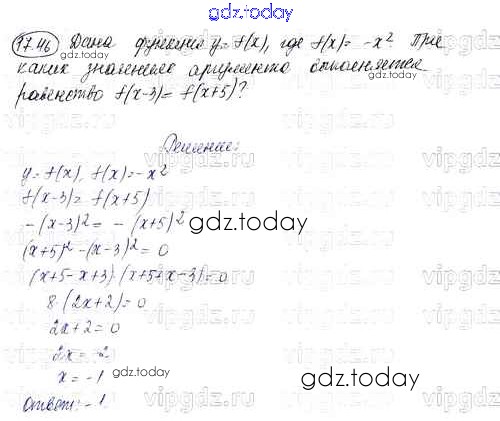 gdz.today
17.46 Дана функция y = f(x), где f(x) = -x² При
каких значениях аргумента выполняется
gdz.today
равенство f(x-3) = f(x+5)?
Решение:
y = f(x), f(x) = -x²
f(x-3) = f(x+5)
-(x-3)² = -(x+5)²
(x+5)² - (x-3)² = 0
(x+5-x+3)·(x+5+x-3) = 0
8·(2x+2) = 0
2x+2 = 0
2x = -2
x = -1
Ответ: -1
gdz.today
gdz.today
gdz.today
gdz.today
gdz.today
vipgdz.ru
vipgdz.ru
vipgdz.ru
vipgdz.ru